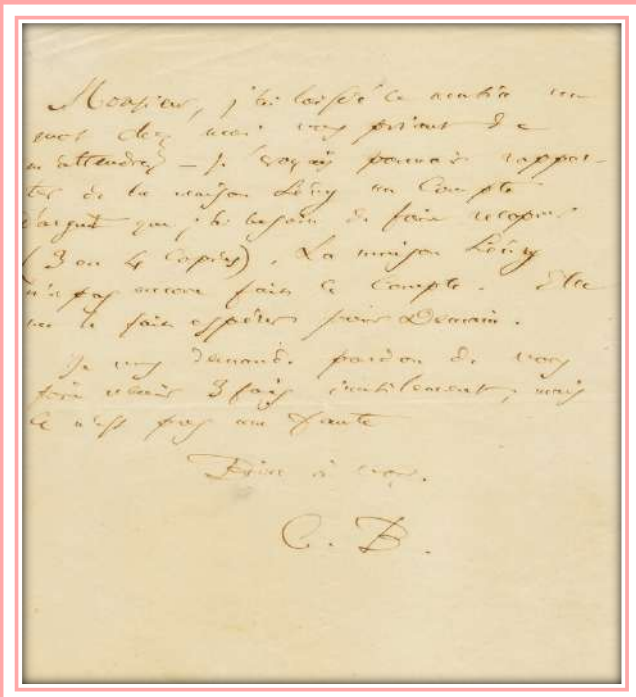 Monsieur, j'ai laissé ce matin un
mot chez moi vous priant de
m'attendre – je croyais pouvoir rappor-
ter de la maison Lévy un Compte
d'argent que j'ai besoin de faire recopier
(3 ou 4 Copies). La maison Lévy
n'a pas encore fait ce Compte. Elle
me le fait espérer pour Demain.
Je vous demande pardon de vous
faire venir 3 fois inutilement; mais
ce n'est pas ma faute
Bien à vous.
C. B.